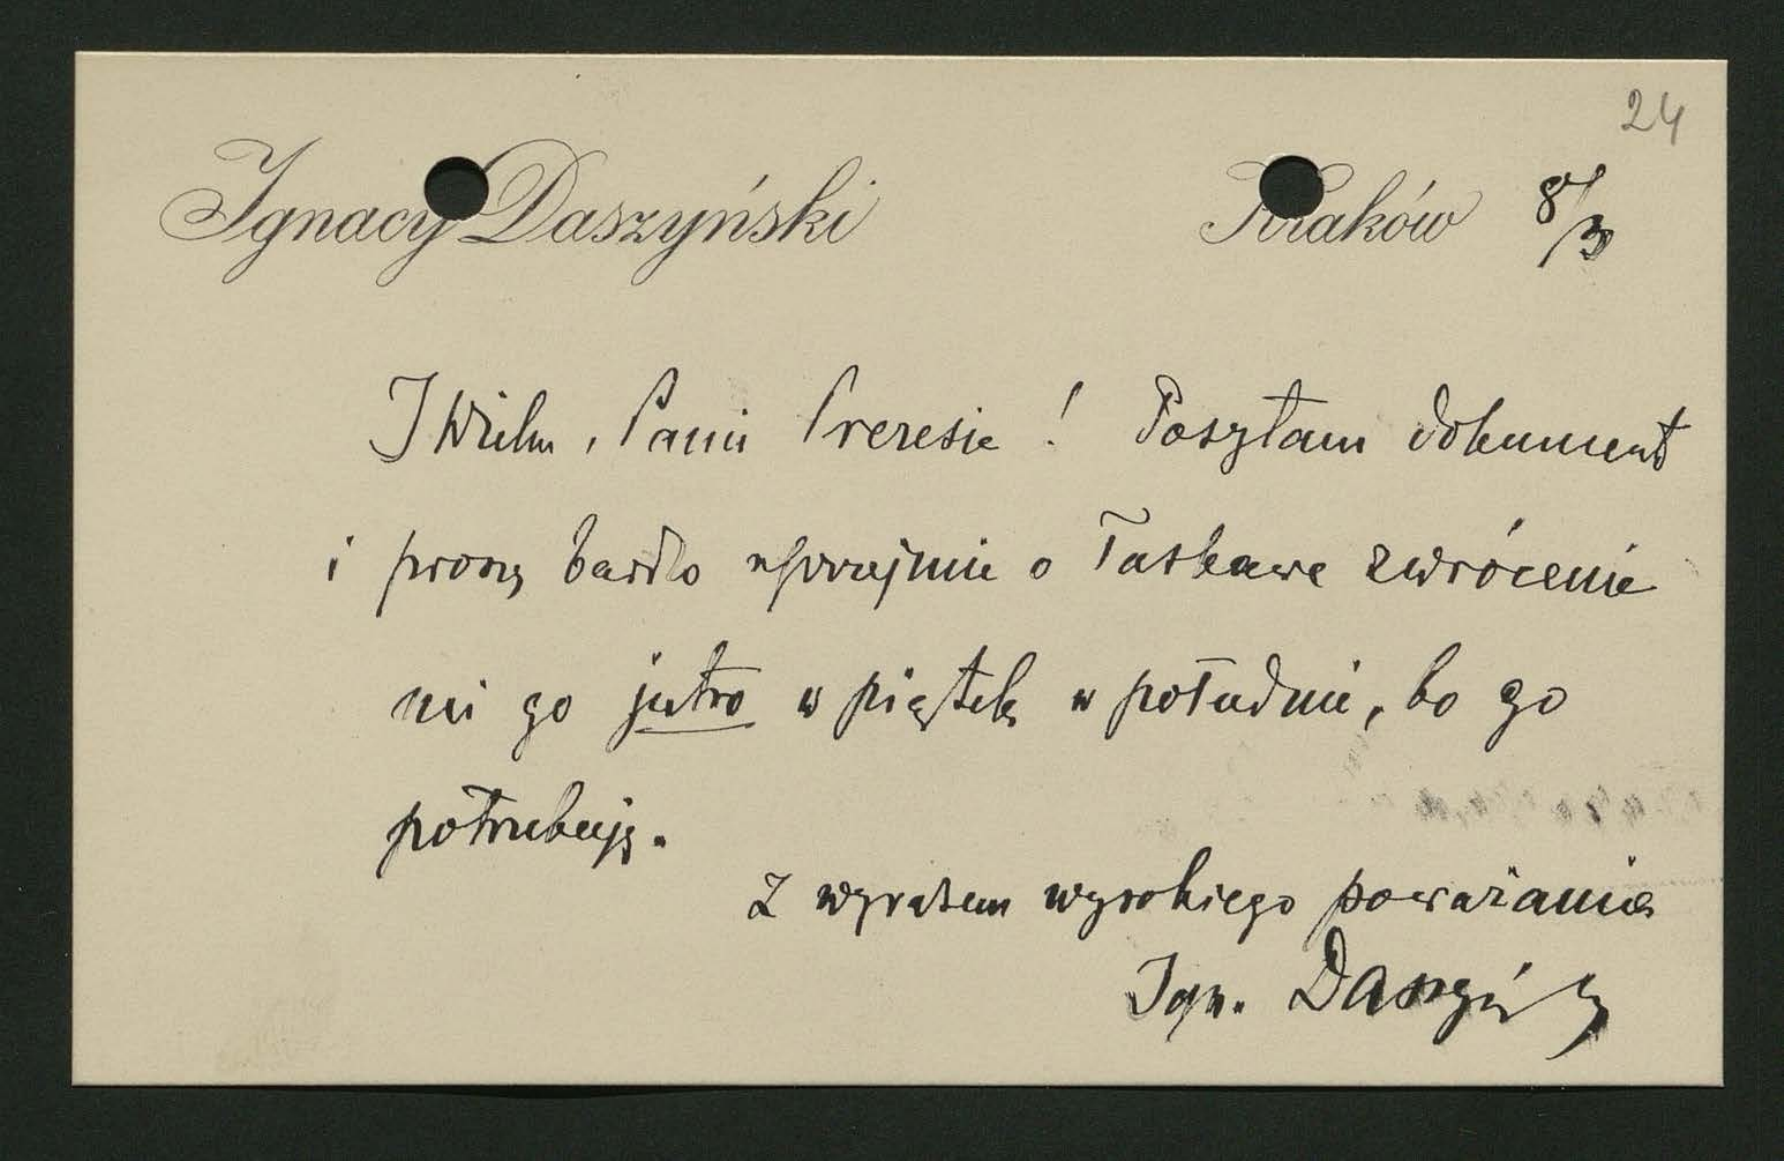 24
Ignacy Daszyński Kraków 8/3
JWielm. Panie Prezesie! Posyłam dokument
i proszę bardzo uprzejmie o łaskawe zwrócenie
mi go jutro w piątek w południe, bo go
potrzebuję.
Z wyrazem wysokiego poważania
Ign. Daszyński